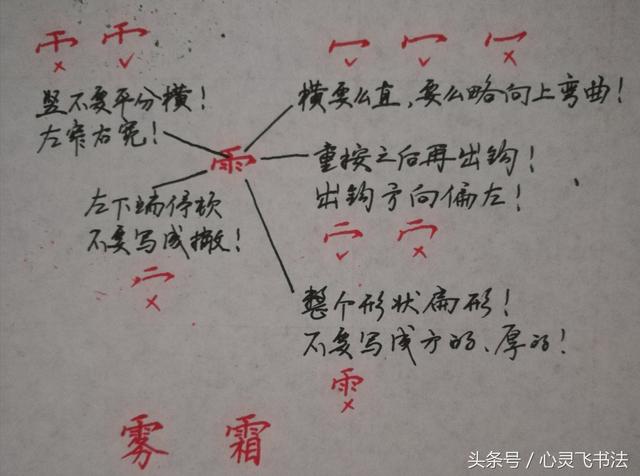 竖不要平分横！
左窄右宽！
横要么直，要么略向上弯曲！
重按之后再出钩！
出钩方向偏左！
左下端停顿
不要写成撇！
整个形状扁形！
不要写成方的、厚的！
雾 霜
头条号／心灵飞书法